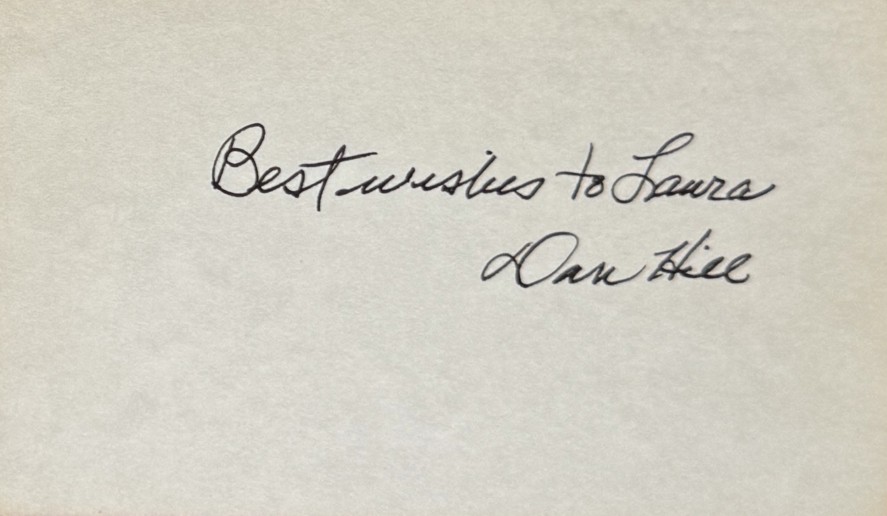 Best wishes to Laura
Dan Hill